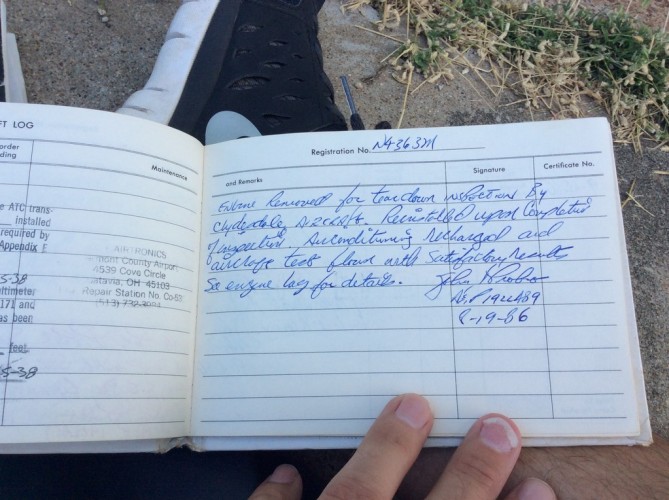 FT LOG
order
ding
Maintenance
e ATC trans-
installed
required by
Appendix F
5-38
ltimeter
171 and
as been
feet.
5-38
AIRTRONICS
mont County Airport
4539 Cove Circle
atavia, OH 45103
Repair Station No. Co-
(513) 732-
Registration No. N4363M
and Remarks
Signature
Certificate No.
Engine Removed for teardown inspection By
Clydesdale Aircraft. Reinstalled upon Completion
of inspection. Airconditioning recharged and
aircraft test flown with Satisfactory Results
See engine log for details. John
8-19-86